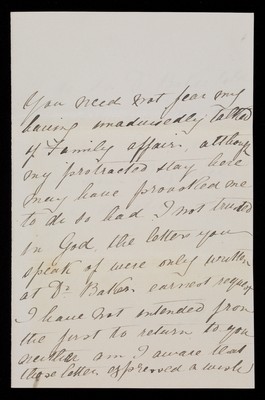 You need not fear my
having unadvisedly talked
of Family affairs, although
my protracted stay here
may have provoked me
to do so had I not trusted
in God, the letters you
speak of were only written
at Dr Baker earnest request
I have not intended from
the first to return to you
neither am I aware that
those letters expressed a wish